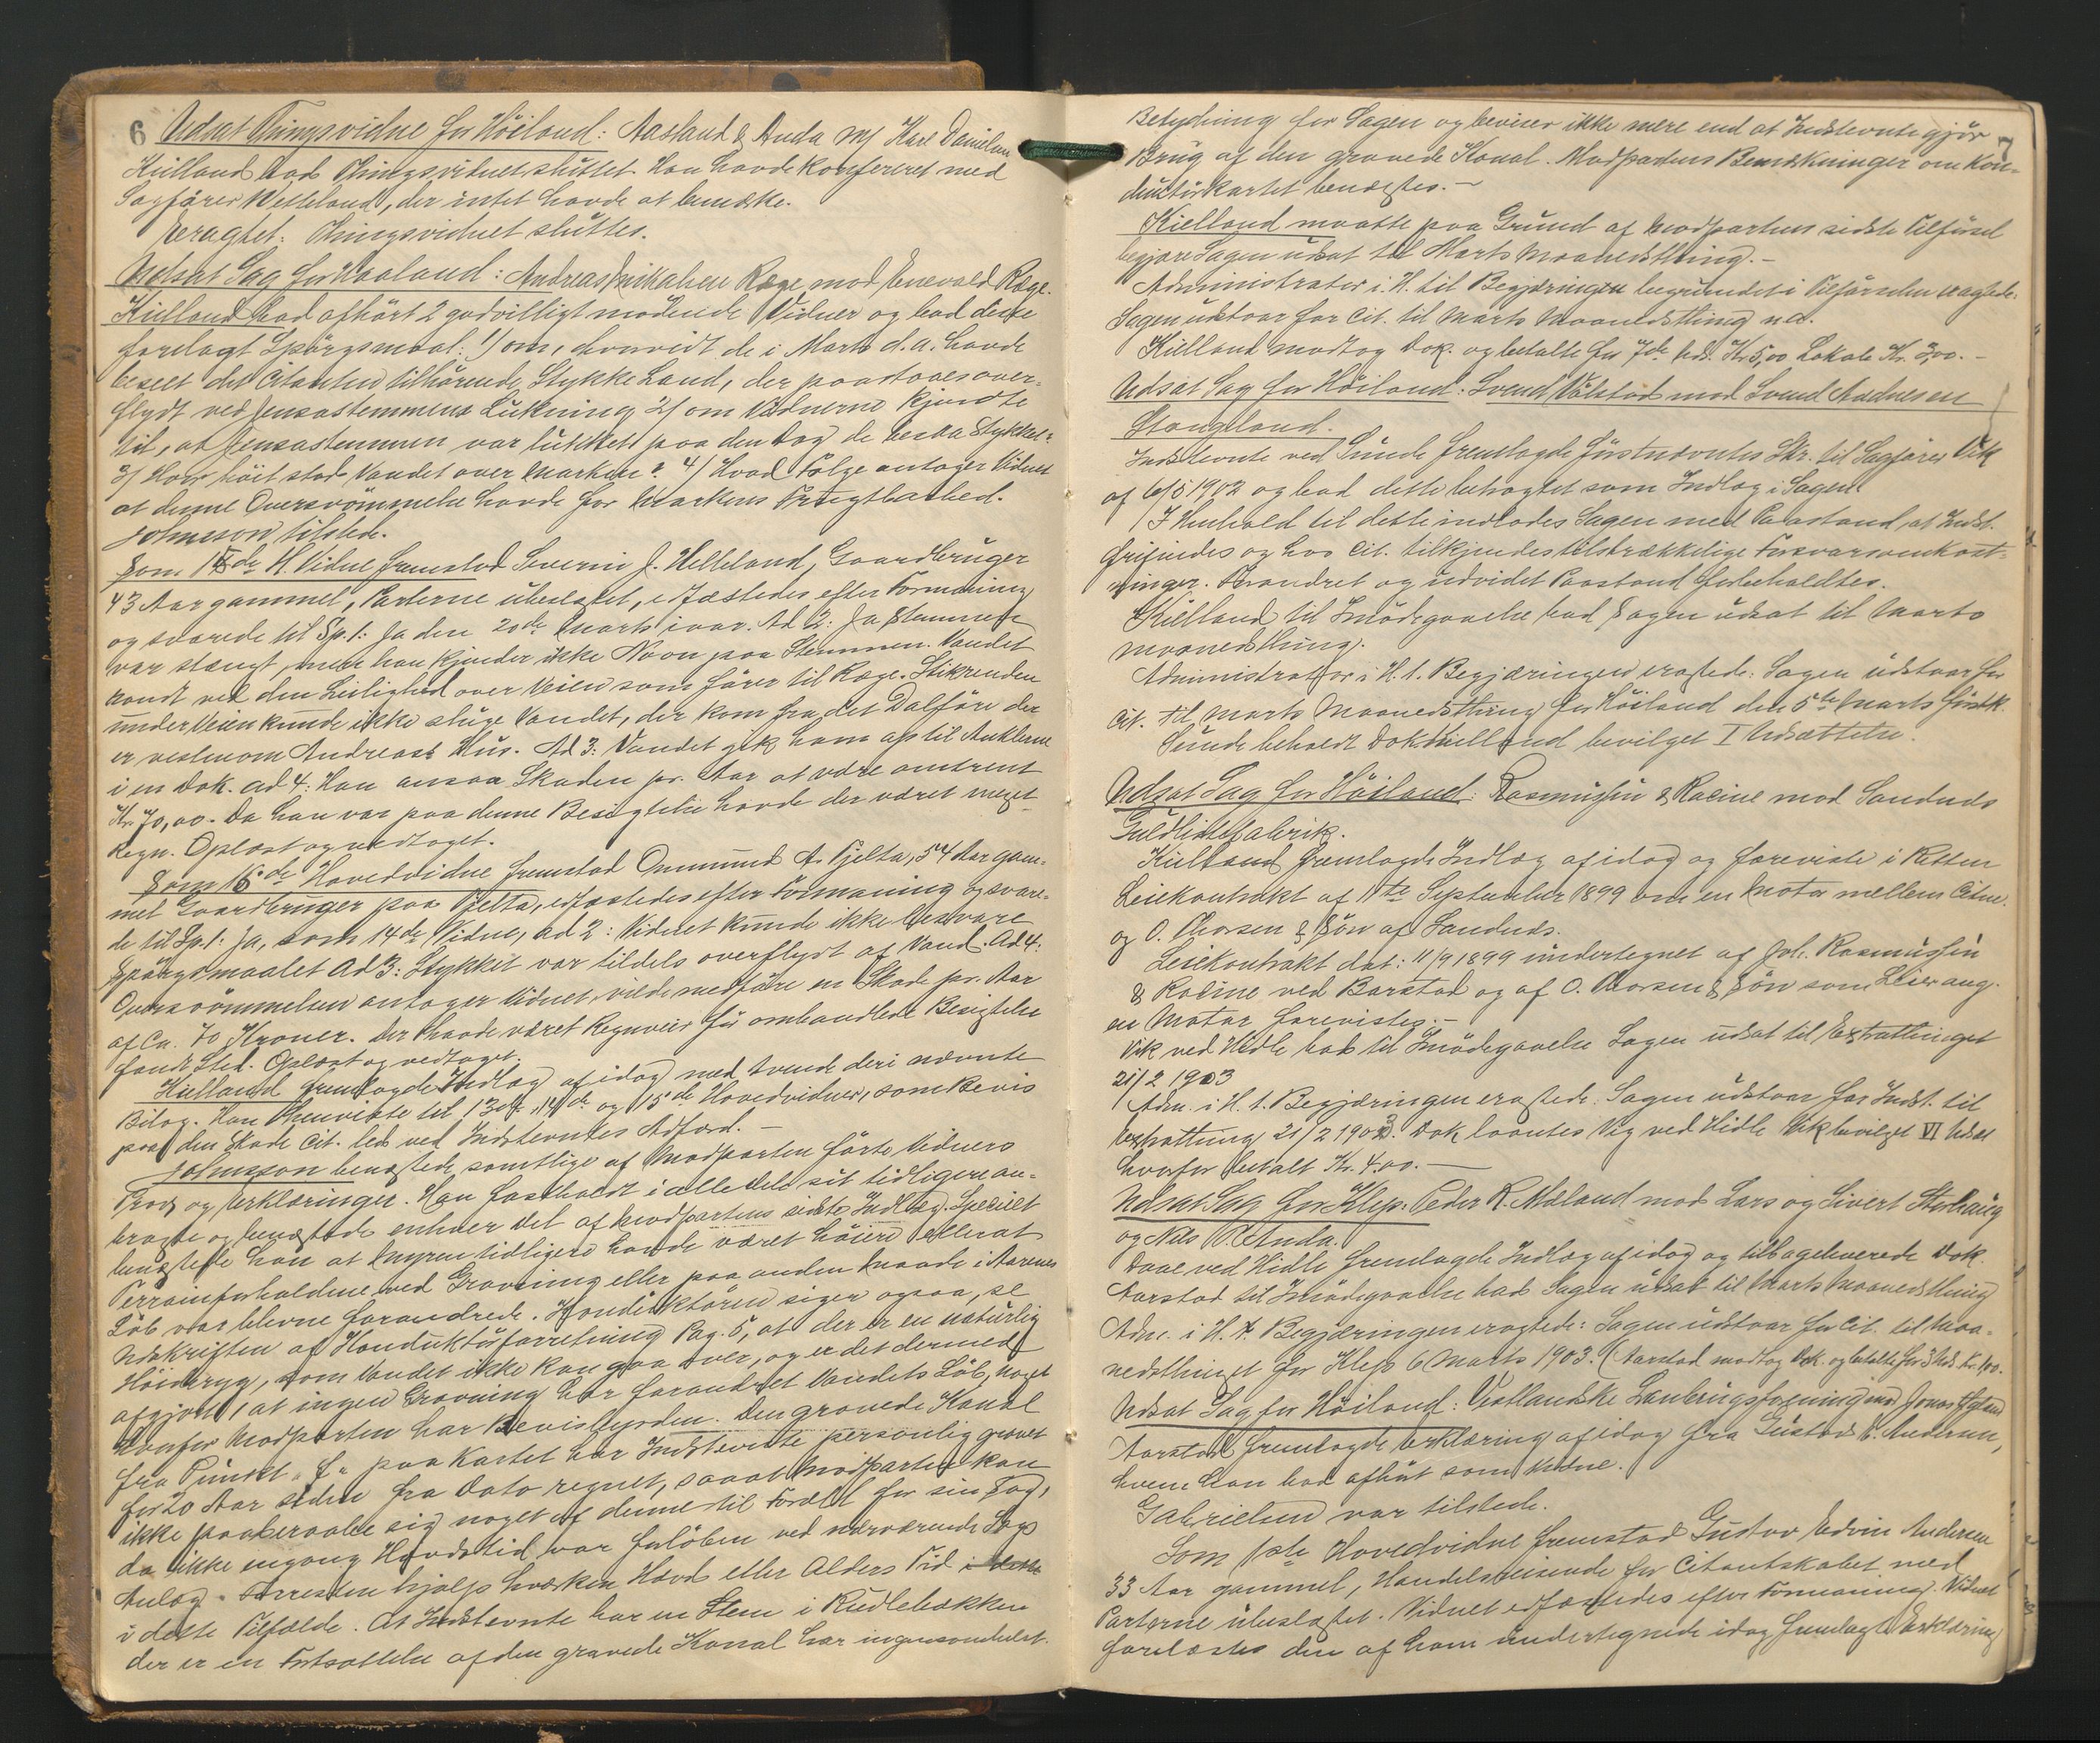 6 Udsat Thingsvidne for Höiland: Aasland & Anda m/ Karl Danielsen
Kielland bad Thingsvidnet sluttet. Han havde konfereret med
Sagförer Welleland, der intet havde at bemærke.
Eragtet: Thingsvidnet sluttes.
Udsat Sag for Haaland: Andreas Mikalsen Ræge mod Enevald Ræge.
Kielland bad afhört 2 godvilligt mödende Vidner og bad disse
forelagt Spörgsmaal: 1/ om, hvorvidt de i Marts d.a. havde
beseet det Citanten tilhörende Stykke Land, der paastaaes over-
flydt ved Jensastemmens Lukning 2/ om Vidnerne kjendte
til, at Jensastemmen var lukket paa den Dag de besaa Stykket?
3/ Hvor höit stod Vandet over Marken? 4/ Hvad Fölge antager Vidnet
at denne Oversvömmelse havde for Markens Frugtbarhed.
Johnsson tilstede.
Som 14de H. Vidne fremstod Severin J. Helleland, Gaardbruger
43 Aar gammel, Parterne ubeslægtet, edfæstedes efter Formaning
og svarede til Sp. 1: Ja den 20de Marts ivaar. Ad 2: Ja Stemmen
var stængt, men han kjender ikke Navn paa Stemmen. Vandet
randt ved den Leilighed over Veien som förer til Ræge. Stikrenden
under Veien kunde ikke sluge Vandet, der kom fra det Dalföre der
er vestenom Andreas's Hus. Ad 3: Vandet gik ham op til Anklerne
i en Dok. ad 4: Han ansaa Skaden pr. Aar at være omtrent
Kr. 70,00. Da han var paa denne Besigtelse havde der været meget
Regn. Oplæst og vedtaget.
Som 15de Hovedvidne fremstod Ommund A. Tjelta, 54 Aar gam-
mel Gaardbruger paa Tjelta, edfæstedes efter Formaning og svare-
de til Sp. 1: Ja, som 14de Vidne, ad 2: Vidnet kunde ikke besvare
Spörgsmaalet Ad 3: Stykket var tildels overflydt af Vand. Ad 4:
Oversvömmelsen antager Vidnet, vilde medföre en Skade pr. Aar
af Ca. 70 Kroner. Der havde været Regnveir för omhandlede Besigtelse
fandt Sted. Oplæst og vedtaget.
Kielland fremlagde Indlæg af idag med tvende deri nævnte
Bilag. Han henviste til 13de, 14de og 15de Hovedvidner, som Bevis
paa den Skade Cit. led ved Indstevntes Adfærd. —
Johnsson benægtede samtlige af Modparten förte Vidners
Prov og Erklæringer. Han fastholdt i alle Dele sit tidligere an-
bragte og benægtede enhver Del af Modpartens sidste Indlæg. Specielt
benægtede han at Myren tidligere havde været höiere eller at
Terrainforholdene ved Gravning eller paa anden Maade i Aarenes
Löb var blevne forandrede. Konduktören siger ogsaa, se
Udskriften af Konduktörforretning Pag. 5, at der er en naturlig
Höideryg, som Vandet ikke kan gaa over, og er det dermed
afgjort, at ingen Gravning har forandret Vandets Löb, noget
hvorfor Modparten har Bevisbyrden. Den gravede Kanal
fra Punkt "f" paa Kartet har Indstevnte personlig gravet
for 20 Aar siden fra Dato regnet, saaat Modparten kan
ikke paaberaabe sig noget af denne til Fordel for sin Sag,
da ikke engang Hævdstid var forlöben ved nærværende Sags
Anlæg. Forresten hjælper hverken Hævd eller Alders Tid
i dette Tilfælde. At Indstevnte har en Stem i Rudlebækken
der er en Fortsættelse af den gravede Kanal har ingensomhelst
7
Betydning for Sagen og beviser ikke mere end at Indstevnte gjör
Brug af den gravede Kanal. Modpartens Bemærkninger om Kon-
duktörkartet benægtes. —
Kielland maatte paa Grund af Modpartens sidste Tilförsel
begjære Sagen udsat til Marts Maanedsthing. —
Administrator i H. til Begjæringen begrundet i Tilförselen eragtede:
Sagen udstaar for Cit. til Marts Maanedsthing n.a.
Kielland modtog Dok. og betalte for 7de Uds. Kr. 5,00 Lokale Kr. 3,00. —
Udsat Sag for Höiland: Svend Ådlstad mod Svend Andersen
Stangeland.
Indstevnte ved Sunde fremlagde Justnævntes Skr. til Sagförer Vik
af 6/5 1902 og bad dette betragtet som Indlæg i Sagen.
I Henhold til dette indlodes Sagen med Paastand, at Indst.
frifindes og hos Cit. tilkjendes tilstrækkelige Forsvarsomkost-
ninger. Forandret og udvidet Paastand forbeholdtes.
Kielland til Imödegaaelse bad Sagen udsat til Marts
Maanedsthing.
Administrator i H. t. Begjæringen eragtede: Sagen udstaar for
Cit. til Marts Maanedsthing for Höiland den 5te Marts förstk.
Sunde beholdt Dok. Kielland bevilget I Udsættelse.
Udsat Sag for Höiland: Rasmussen & Racine mod Sandnæs
Guldlistefabrik.
Kielland fremlagde Indlæg af idag og foreviste i Retten
Leiekontrakt af 11te September 1899 om en Motor mellem Citne.
og O. Thorsen & Sön af Sandnæs.
Leiekontrakt dat: 11/9 1899 undertegnet af Joh. Rasmussen
& Racine ved Barstad og af O. Thorsen & Sön som Leier ang.
en Motor forevistes. —
Vik ved Hidle bad til Imödegaaelse Sagen udsat til Extrathinget
21/2 1903
Adm. i H. t. Begjæringen eragtede: Sagen udstaar for Indst. til
Extrathing 21/2 1903. Dok laantes Vig ved Hidle Vik bevilget VI Udsæt
hvorfor betalt Kr. 4.00. —
Udsat Sag for Klep: Peder R. Mæland mod Lars og Sivert Storhaug
og Nils Anda.
Daae ved Hidle fremlagde Indlæg af idag og tilbageleverede Dok.
Aarstad til Imödegaaelse bad Sagen udsat til Marts Maanedsthing
Adm. i H. t. Begjæringen eragtede: Sagen udstaar for Cit. til Maa-
nedsthinget for Klep 6 Marts 1903. (Aarstad modtog Dok. og betalte for 3 Uds. Kr. 1,00.
Udsat Sag for Höiland: Vestlandske Landbrugsforening mod Jonas
Aarstad fremlagde Erklæring af idag fra Gustav E. Andersen,
hvem han bad afhört som Vidne.
Gabrielsen var tilstede.
Som 1ste Hovedvidne fremstod Gustav Edvin Andersen
33 Aar gammel, Handelsreisende for Citantskabet med
Parterne ubeslægtet. Vidnet edfæstedes efter Formaning. Vidnet
forelæstes den af ham undertegnede idag fremlagte Erklæring